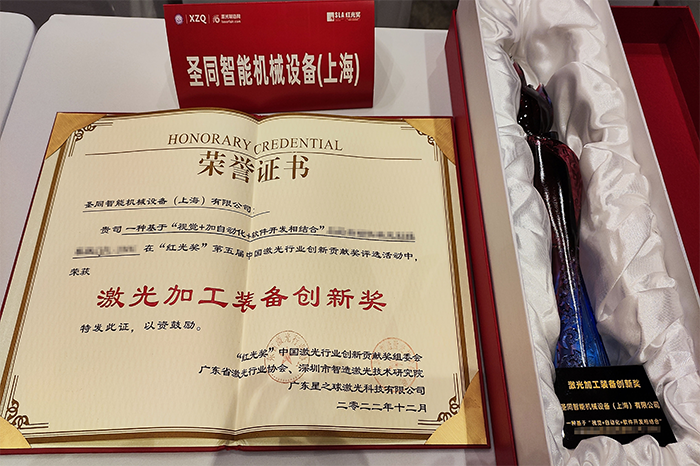 XZQ 激光制造网
laserfair.com
SLA 红光奖
圣同智能机械设备(上海)
HONORARY CREDENTIAL
荣誉证书
圣同智能机械设备（上海）有限公司：
贵司 一种基于“视觉+加自动化+软件开发相结合”
在“红光奖”第五届中国激光行业创新贡献奖评选活动中，
荣获
激光加工装备创新奖
特发此证，以资鼓励。
“红光奖”中国激光行业创新贡献奖组委会
广东省激光行业协会、深圳市智造激光技术研究院
广东星之球激光科技有限公司
二〇二二年十二月
激光加工装备创新奖
圣同智能机械设备（上海）有限公司
一种基于“视觉+自动化+软件开发相结合”